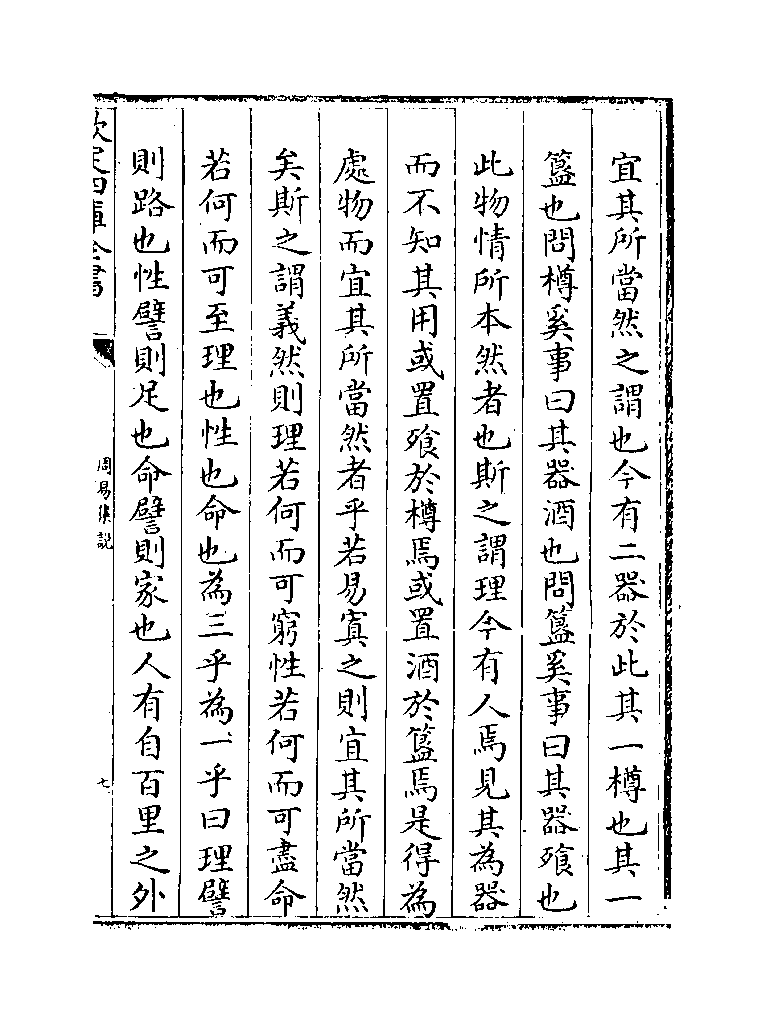 宜其所當然之謂也今有二器於此其一樽也其一
簋也問樽奚事曰其器酒也問簋奚事曰其器飧也
此物情所本然者也斯之謂理今有人焉見其為器
而不知其用或置飧於樽焉或置酒於簋焉是得為
處物而宜其所當然者乎若易寘之則宜其所當然
矣斯之謂義然則理若何而可窮性若何而可盡命
若何而可至理也性也命也為三乎為一乎曰理譬
則路也性譬則足也命譬則家也人有自百里之外
欽定四庫全書
周易集説
七